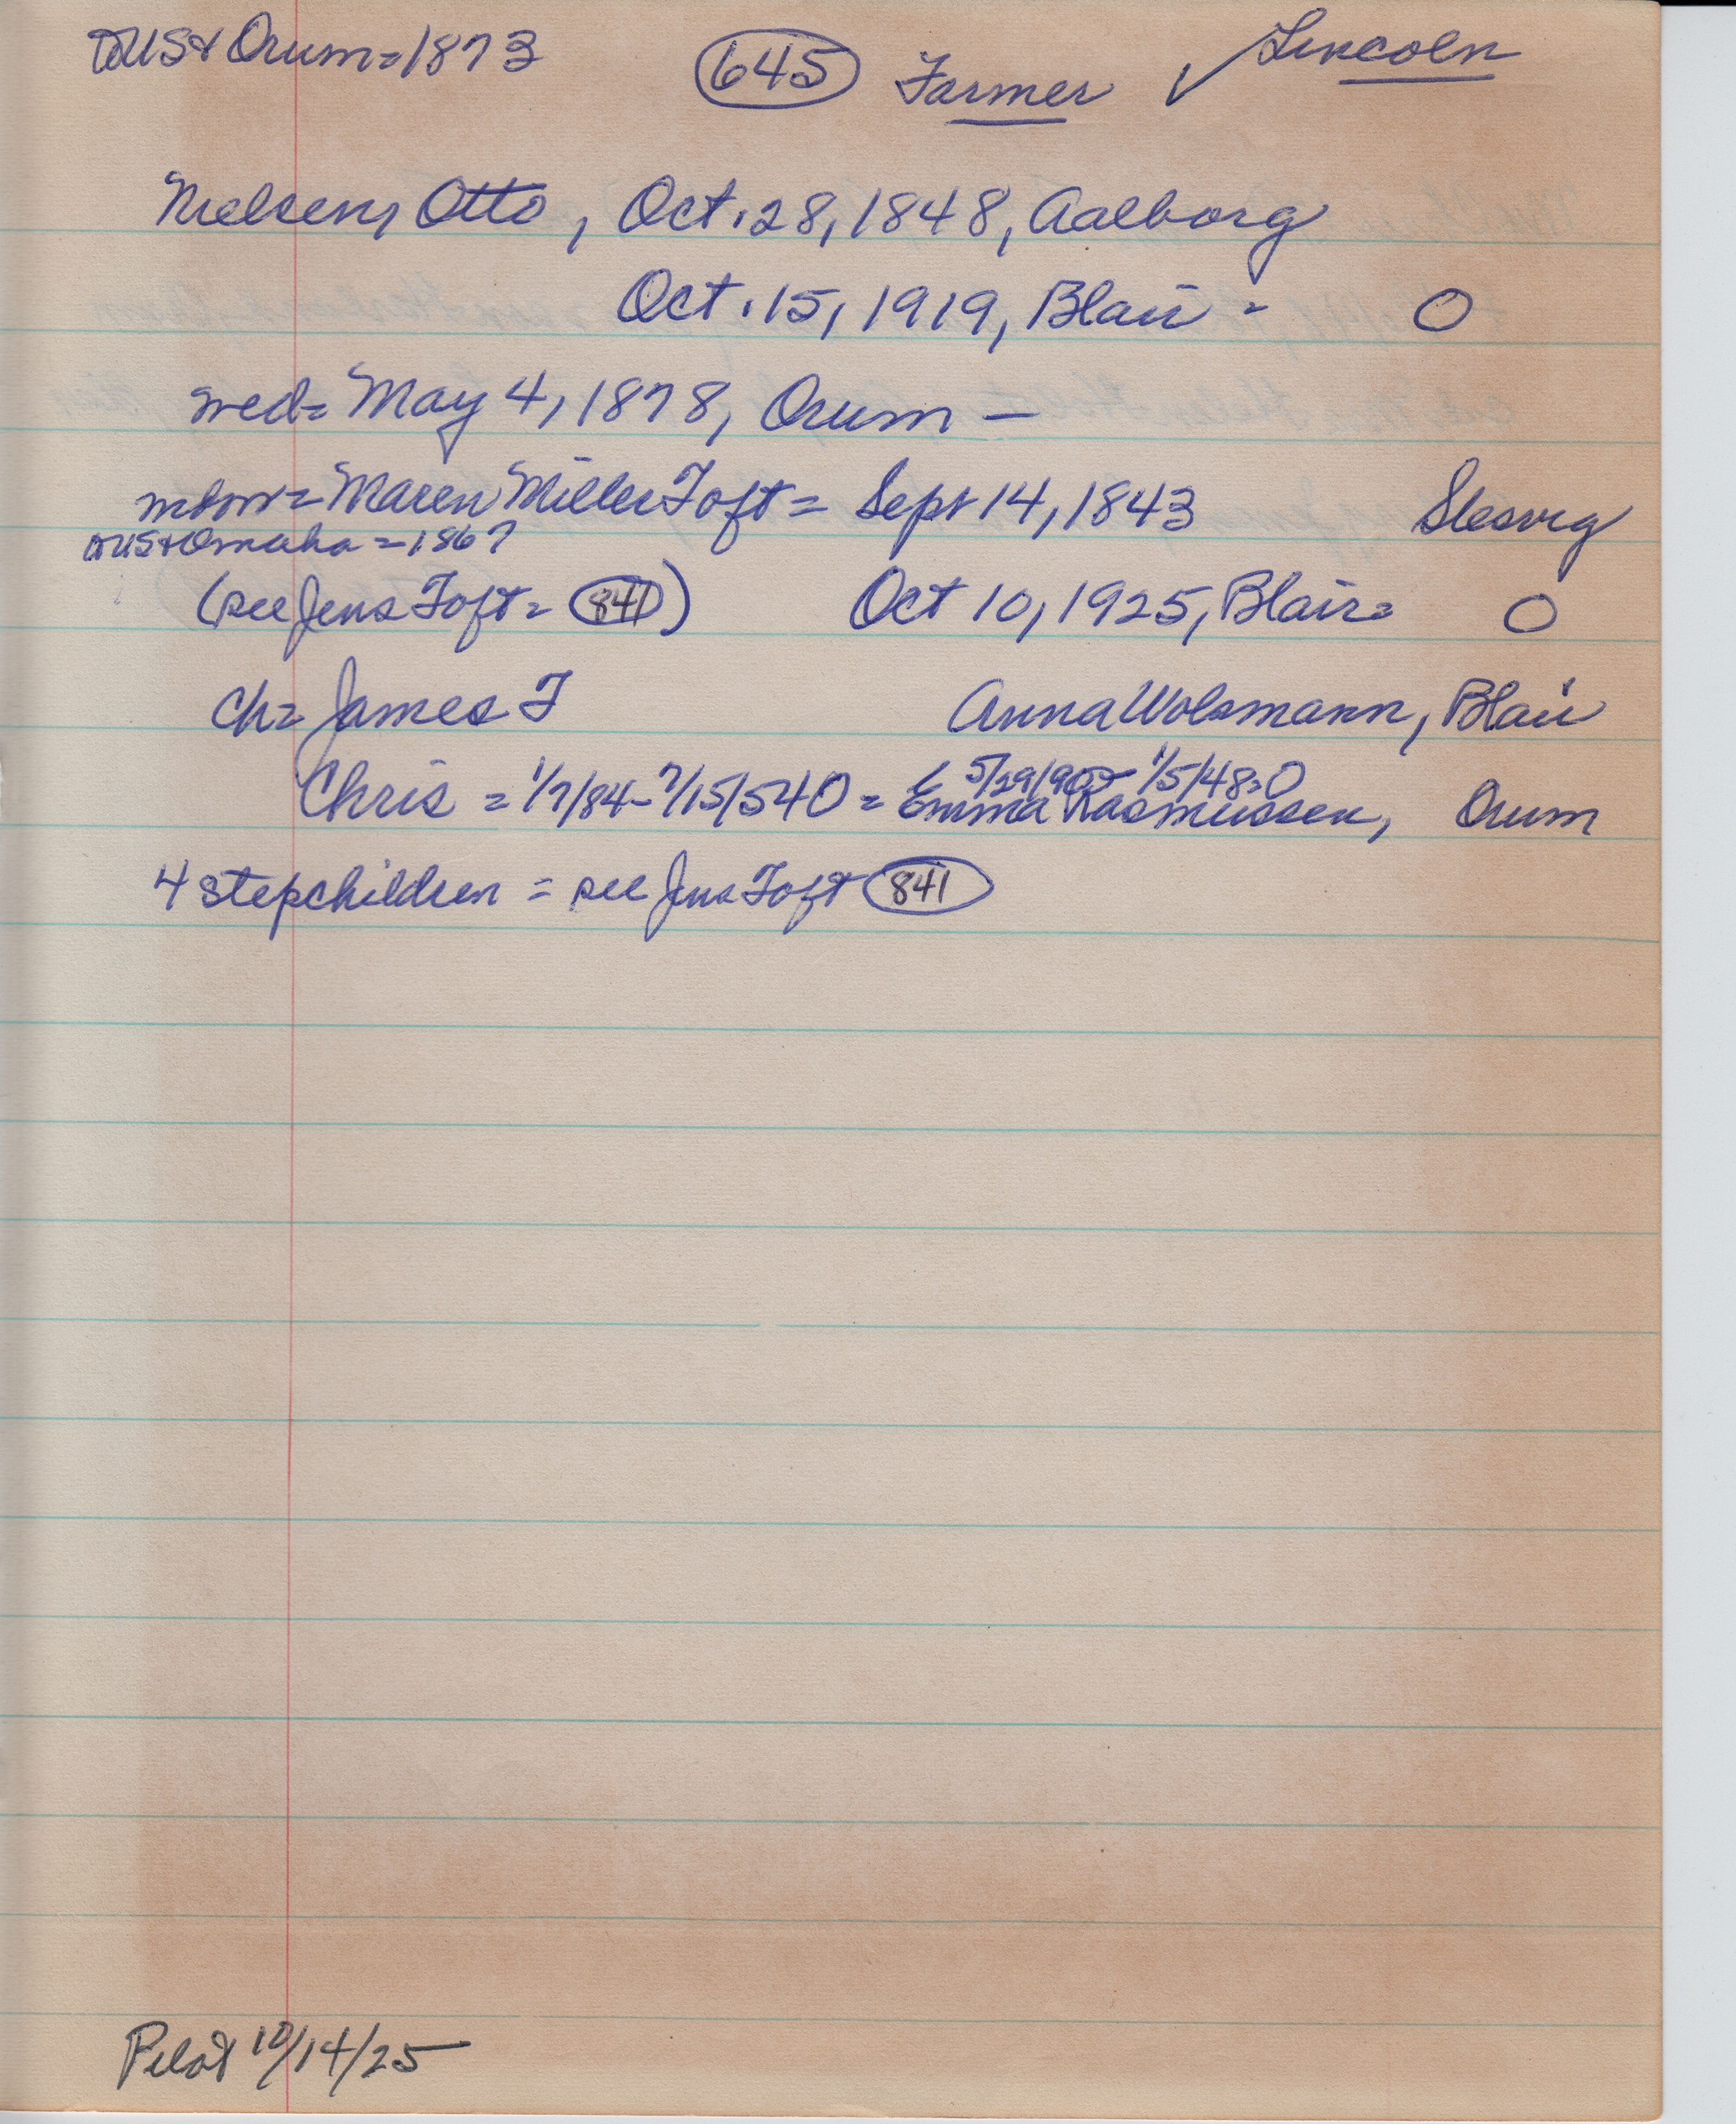 to US & Orum = 1873 (645) Farmer ✓ Lincoln
Nielsen, Otto, Oct. 28, 1848, Aalborg
Oct. 15, 1919, Blair - O
wed = May 4, 1878, Orum —
= Maren Miller Toft = Sept 14, 1843 Slesvig
to US & Omaha = 1867
(see Jens Toft = (841)) Oct 10, 1925, Blair = O
ch = James F Anna Wolsmann, Blair
5/29/90 - 1/5/48 = O
Chris = 1/7/84 - 7/15/54 O = Emma Rasmussen, Orum
4 stepchildren = see Jens Toft (841)
Pilot 10/14/25